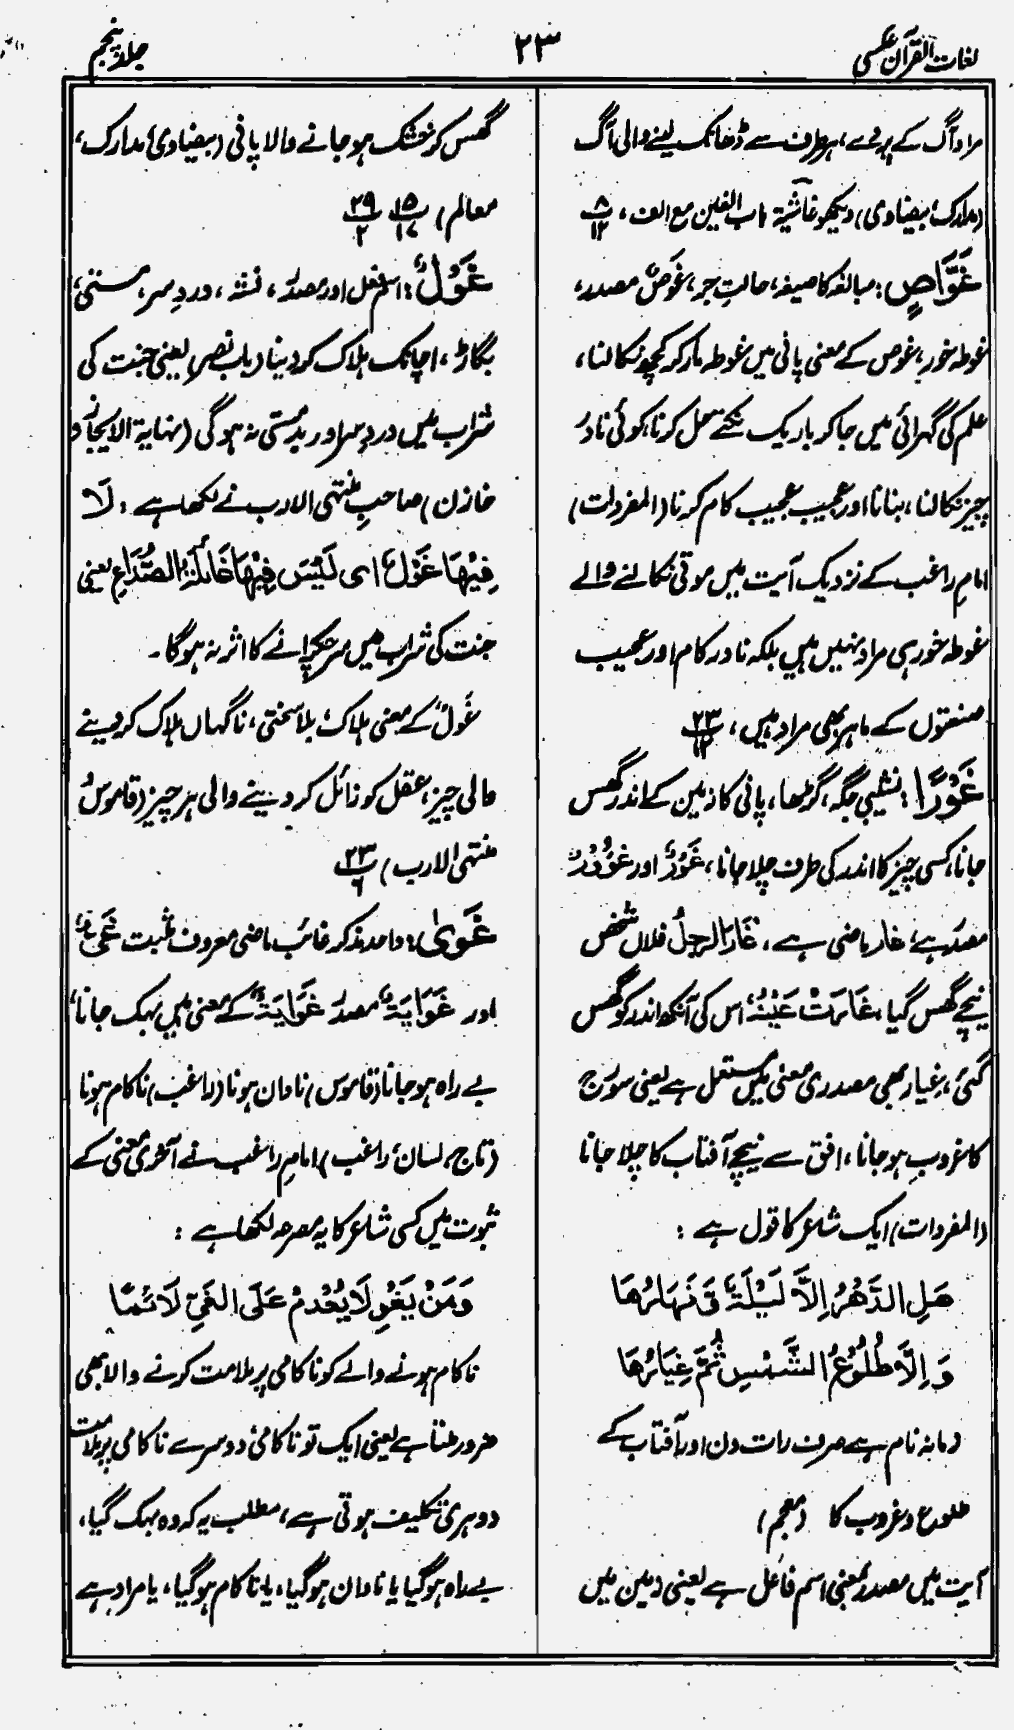 لغات القرآن عکسی
۲۳
جلد پنجم
مراد آگ کے پردے، ہر طرف سے ڈھانک لینے والی آگ
(مدارک، بیضاوی) دیکھو غاشیۃ باب الغین مع الف، ۸/۱۲
غَوَّاصٍ: مبالغہ کا صیغہ، حالتِ جر، غَوصٌ مصدر،
غوطہ خور، غوص کے معنی پانی میں غوطہ مار کر کچھ نکالنا،
علم کی گہرائی میں جا کر باریک نکتے حل کرنا، کوئی نادر
چیز نکالنا، بنانا اور عجیب عجیب کام کرنا (المفردات)
امام راغب کے نزدیک آیت میں موتی نکالنے والے
غوطہ خور ہی مراد نہیں ہیں بلکہ نادر کام اور عجیب
صنعتوں کے ماہر بھی مراد ہیں، ۲۳/۱۲
غَوْرًا: نشیبی جگہ، گڑھا، پانی کا زمین کے اندر گھس
جانا، کسی چیز کا اندر کی طرف چلا جانا، غَوْرٌ اور غُوُوْرٌ
مصدر ہے، غار ماضی ہے، غَارَ الرجلُ فلاں شخص
نیچے گھس گیا، غَارَتْ عَیْنُہٗ اس کی آنکھ اندر کو گھس
گئی، غیار بھی مصدری معنی میں مستعمل ہے یعنی سورج
کا غروب ہو جانا، افق سے نیچے آفتاب کا چلا جانا
(المفردات) ایک شاعر کا قول ہے:
ھَلِ الدَّھْرُ اِلَّا لَیْلَۃٌ وَّنَہَارُھَا
وَاِلَّا طُلُوْعُ الشَّمْسِ ثُمَّ غِیَارُھَا
زمانہ نام ہے صرف رات دن اور آفتاب کے
طلوع و غروب کا (معجم)
آیت میں مصدر بمعنی اسم فاعل ہے یعنی زمین میں
گھس کر خشک ہو جانے والا پانی (بیضاوی، مدارک،
معالم) ۱۵/۱۷ ۲۹/۲
غَوْلٌ: اسم فعل اور مصدر، نشہ، دردِ سر، مستی،
بگاڑ، اچانک ہلاک کر دینا (باب نصر) یعنی جنت کی
شراب میں دردِ سر اور بدمستی نہ ہوگی (نہایۃ الایجاز و
خازن) صاحبِ منتہی الادب نے لکھا ہے: لَا
فِیْھَا غَوْلٌ ای لَیْسَ فِیْھَا غَائِلَۃُ الصُّدَاعِ یعنی
جنت کی شراب میں سر چکرانے کا اثر نہ ہوگا۔
غَوْلٌ کے معنی ہلاک، بلا، سختی، ناگہاں ہلاک کر دینے
والی چیز، عقل کو زائل کر دینے والی ہر چیز (قاموس،
منتہی الارب) ۲۳/۶
غَوٰی: واحد مذکر غائب ماضی معروف مثبت غَیٌّ
اور غَوَایَۃٌ مصدر غَوَایَۃٌ کے معنی ہیں بہک جانا،
بے راہ ہو جانا (قاموس) نادان ہونا (راغب) ناکام ہونا
(تاج، لسان، راغب) امام راغب نے آخری معنی کے
ثبوت میں کسی شاعر کا یہ مصرعہ لکھا ہے:
وَمَنْ یَغْوِ لَا یُعْدَمْ عَلَی الغَیِّ لَائِمًا
ناکام ہونے والے کو ناکامی پر ملامت کرنے والا بھی
ضرور ملتا ہے یعنی ایک تو ناکامی دوسرے ناکامی پر ملامت
دوہری تکلیف ہوتی ہے، مطلب یہ کہ وہ بہک گیا،
بے راہ ہو گیا یا نادان ہو گیا، یا ناکام ہو گیا، یا مراد ہے